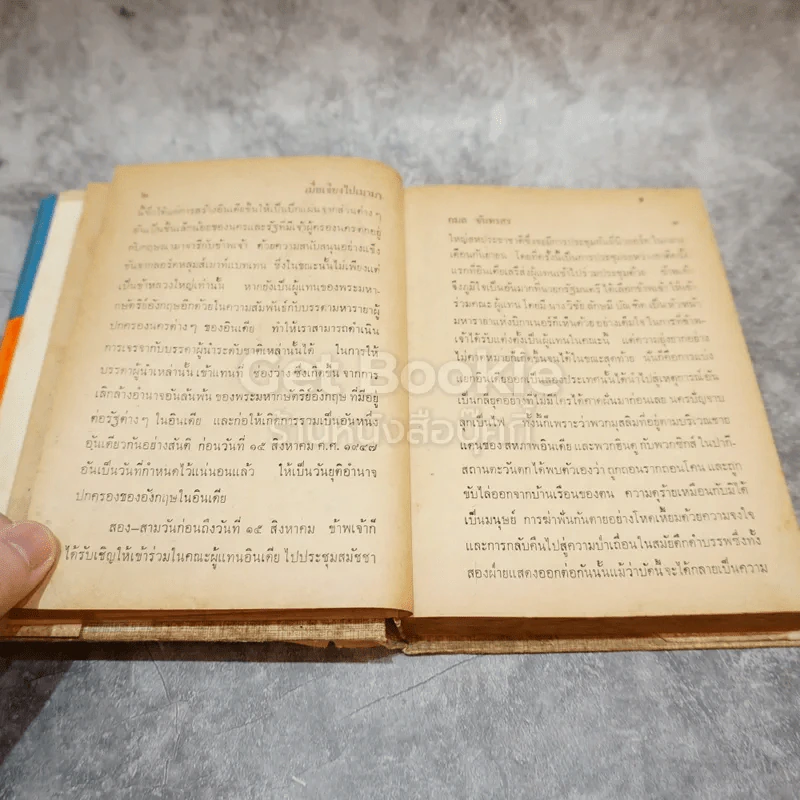 ๒
เมื่อเขียวไปเมาเมา
นี้ซึ่งได้แก่การสลายอินเดียขึ้นให้เป็นปึกแผ่น จากส่วนต่าง ๆ
อันเป็นชิ้นเล็กน้อยของนครและรัฐที่มีเจ้าผู้ครองนครตกอยู่
ด้วยความสนับสนุนอย่างแข็ง
ขันจากลอร์ดหลุยส์เมาท์แบทเทน ซึ่งในขณะนั้นไม่เพียงแต่
เป็นข้าหลวงใหญ่เท่านั้น หากยังเป็นผู้แทนของพระมหา-
กษัตริย์อังกฤษอีกด้วยในความสัมพันธ์กับบรรดามหาราชาผู้
ปกครองนครต่าง ๆ ของอินเดีย ทำให้เราสามารถดำเนิน
การเจรจากับบรรดาผู้นำระดับชาติเหล่านั้นได้ ในการให้
บรรดาผู้นำเหล่านั้น เข้าแทนที่ ช่องว่าง ซึ่งเกิดขึ้น จากการ
เลิกล้างอำนาจอันล้นพ้น ของพระมหากษัตริย์อังกฤษ ที่มีอยู่
ต่อรัฐต่าง ๆ ในอินเดีย และก่อให้เกิดการรวมเป็นอันหนึ่ง
อันเดียวกันอย่างสันติ ก่อนวันที่ ๑๕ สิงหาคม ค.ศ. ๑๙๔๗
อันเป็นวันที่กำหนดไว้แน่นอนแล้ว ให้เป็นวันยุติอำนาจ
ปกครองของอังกฤษในอินเดีย
สอง–สามวันก่อนถึงวันที่ ๑๕ สิงหาคม ข้าพเจ้าก็
ได้รับเชิญให้เข้าร่วมในคณะผู้แทนอินเดีย ไปประชุมสมัชชา
ใหญ่สหประชาชาติซึ่งจะมีการประชุมกันที่นิวยอร์คในกลาง
เดือนกันยายน
แรกที่อินเดียเสรีส่งผู้แทนเข้าไปร่วมประชุมด้วย ข้าพเจ้า
จึงภูมิใจเป็นอันมากที่นายกรัฐมนตรี ได้เลือกข้าพเจ้า ให้เข้า
ร่วมคณะ ผู้แทน โดยมี นาง วิชัย ลักษมี บัณฑิต เป็นหัวหน้า
มหาราชาแห่งบิกาเนอร์ก็เห็นด้วย อย่างเต็มใจ ในการที่ข้าพ-
เจ้าได้รับแต่งตั้งเป็นผู้แทนในคณะนี้ แต่ความยุ่งยากอย่าง
ไม่คาดหมายก็เกิดขึ้นจนได้ ในขณะสุดท้าย นั่นคือการแบ่ง
แยกอินเดียออกเป็นสองประเทศนั้นได้นำไปสู่เหตุการณ์อัน
เป็นกลียุคอย่างที่ไม่มีใครได้คาดฝันมาก่อนเลย นครปัญจาบ
ลุกเป็นไฟ ทั้งนี้ก็เพราะว่าพวกมุสลิมที่อยู่ตามบริเวณชาย
แดนของ สหภาพอินเดีย และพวกฮินดู กับพวกซิกส์ ในปากี-
สถานตะวันตก ได้พบตัวเองว่า ถูกถอนรากถอนโคน และถูก
ขับไล่ออกจากบ้านเรือนของตน ความดุร้ายเหมือนกับมิได้
เป็นมนุษย์ การฆ่าฟันกันตายอย่างโหดเหี้ยมด้วยความจงใจ
และการกลับคืนไปสู่ความป่าเถื่อนในสมัยดึกดำบรรพซึ่งทั้ง
สองฝ่ายแสดงออกต่อกันนั้นแม้ว่าบัดนี้จะได้กลายเป็นความ
Get Bookie
ร้านหนังสือบุ๊กกี้